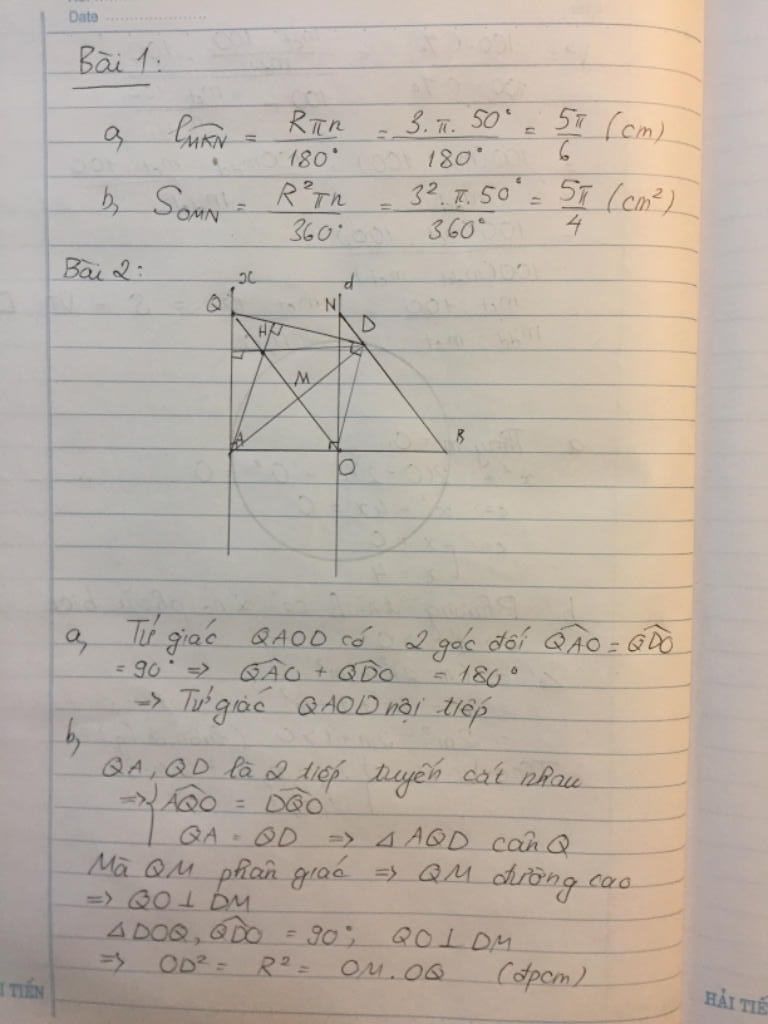 Date
Bài 1:
a, l⌢MKN = Rπn/180° = 3.π.50°/180° = 5π/6 (cm)
b, SOMN = R²πn/360° = 3².π.50°/360° = 5π/4 (cm²)
Bài 2:
x
d
Q
N
H
D
M
A
B
O
a, Tứ giác QAOD có 2 góc đối Q̂AO = Q̂DO
= 90° => Q̂AO + Q̂DO = 180°
=> Tứ giác QAOD nội tiếp
b,
QA, QD là 2 tiếp tuyến cắt nhau
=> { ÂQO = D̂QO
QA = QD => △AQD cân Q
Mà QM phân giác => QM đường cao
=> QO ⊥ DM
△DOQ, Q̂DO = 90°, QO ⊥ DM
=> OD² = R² = OM.OQ (đpcm)
I TIẾN
HẢI TIẾ